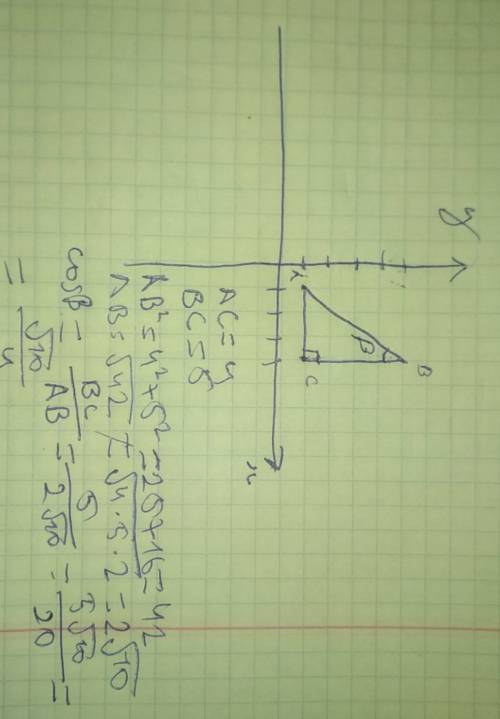 y
B
β
A
C
x
AC = 4
BC = 5
AB² = 4² + 5² = 26 + 16 = 42
AB = √42 ≠ √4·5·2 = 2√10
cos β = BC/AB = 5/2√10 = 5√10/20 =
= √10/4